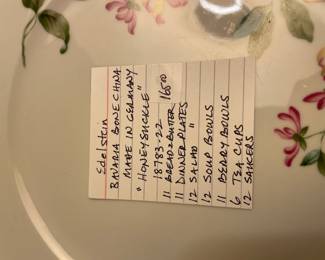 Edelstein
BAVARIA BONE CHINA
MADE IN GERMANY
"HONEYSUCKLE"
18783-22 16500
11 BREAD & BUTTER
11 DINNER PLATES
12 SALAD "
12 SOUP BOWLS
11 BERRY BOWLS
6 TEA CUPS
12 SAUCERS